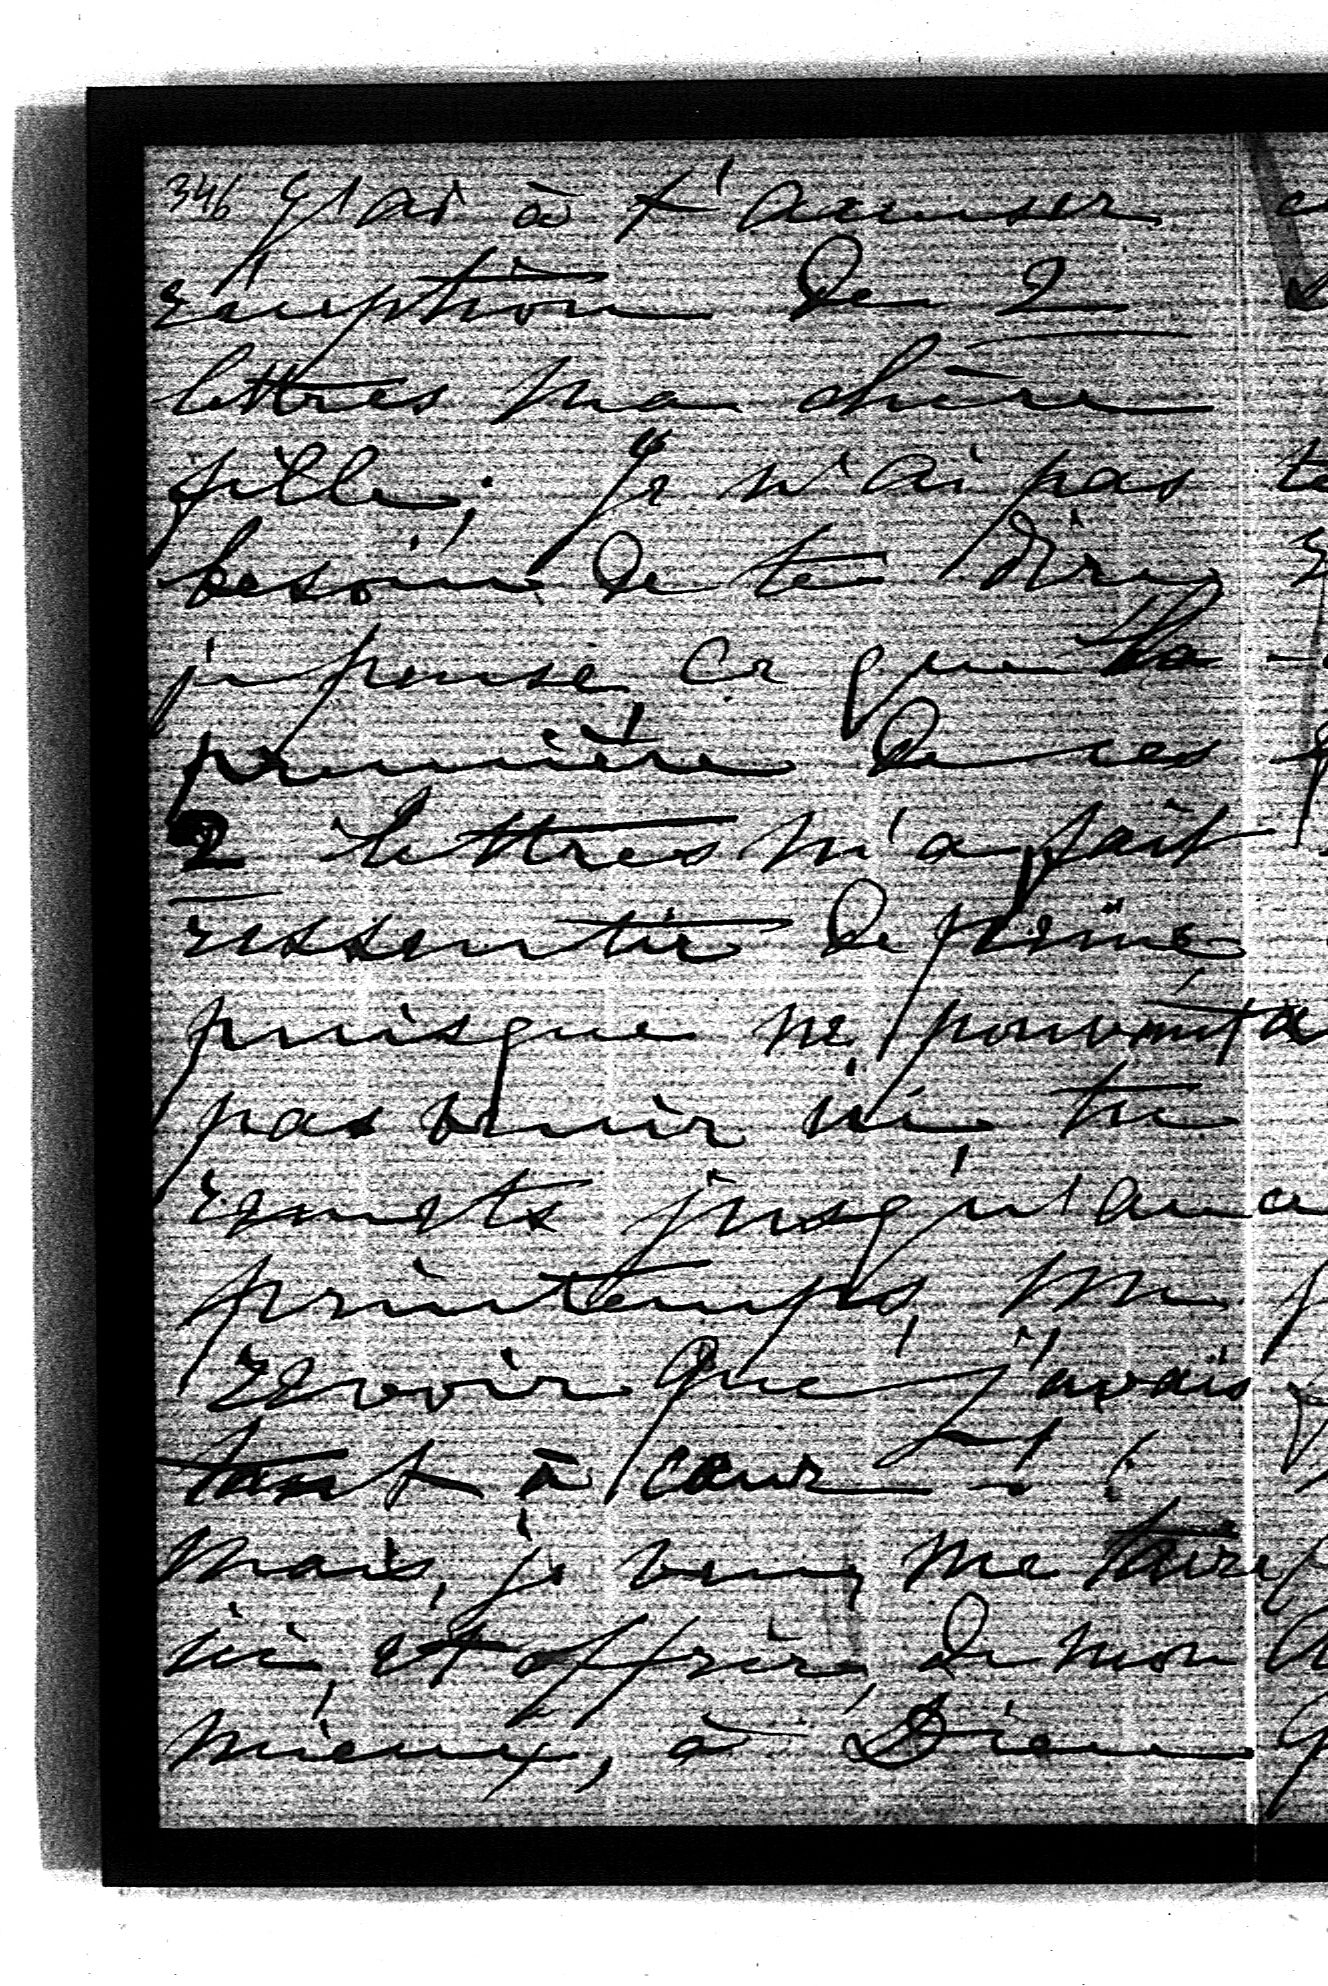 346 J'ai à t'accuser
réception de 2
lettres ma chère
fille; Je n'ai pas
besoin de te dire,
je pense, ce que ta
première de ces
2 lettres m'a fait
ressentir de peine,
puisque ne pouvant
pas venir ici, tu
remets jusqu'au
printemps, un
revoir que j'avais
tant à cœur !
Mais, je veux, me taire
ici, et offrir, de mon
mieux, à Dieu